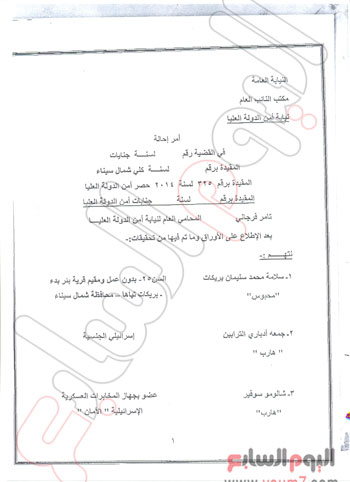 النيابة العامة
مكتب النائب العام
نيابة أمن الدولة العليا
أمر إحالة
في القضية رقم لسنة جنايات
المقيدة برقم لسنة كلي شمال سيناء
المقيدة برقم ٣٢٥ لسنة ٢٠١٤ حصر أمن الدولة العليا
المقيدة برقم لسنة جنايات أمن الدولة العليا
تامر فرجاني المحامي العام لنيابة أمن الدولة العليا
بعد الإطلاع على الأوراق وما تم فيها من تحقيقات:-
نتهم :-
١- سلامة محمد سليمان بريكات السن ٢٥- بدون عمل ومقيم قرية بئر بدء
"محبوس" بريكات تياها – محافظة شمال سيناء .
٢- جمعه أدباري الترابين إسرائيلي الجنسية
" هارب "
٣- شالومو سوفير عضو بجهاز المخابرات العسكرية
"هارب" الإسرائيلية " الأمان "
١
اليوم السابع
www.youm7.com